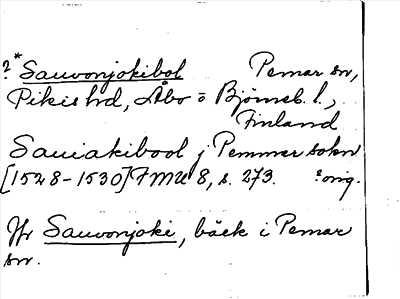 ?*Sauvonjokibol Pemar sn,
Pikis hd, Åbo o Björneb. l.,
Finland
Sauiakibool j Pemmer sokn
[1528-1530] FMU 8, s. 273. ?orig.
Jfr Sauvonjoki, bäck i Pemar
sn.